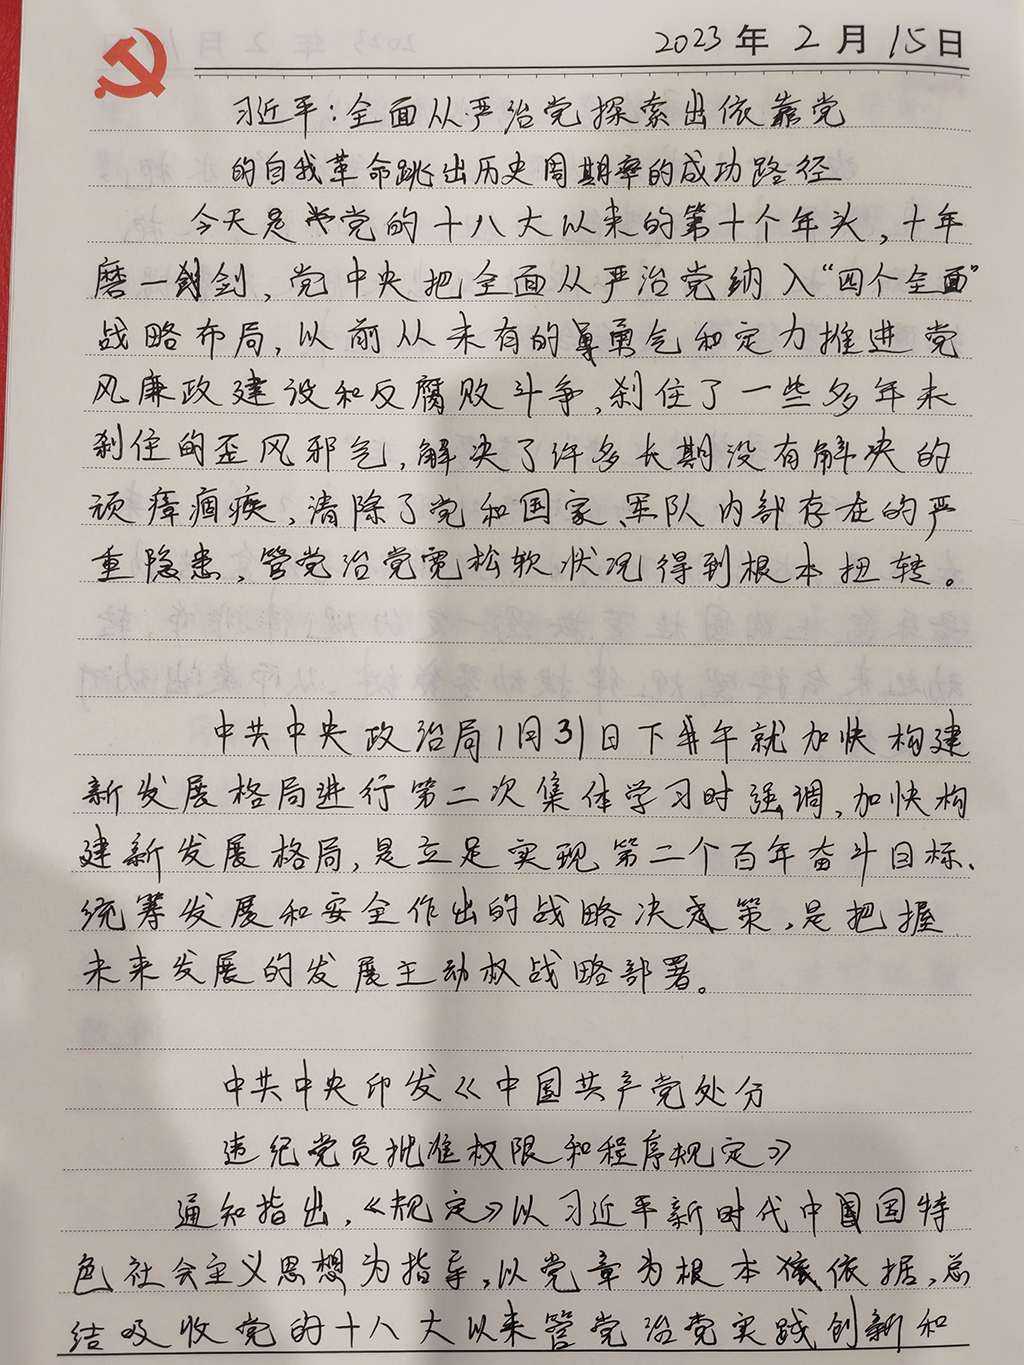 2023年2月15日
习近平:全面从严治党探索出依靠党
的自我革命跳出历史周期率的成功路径
今天是党的十八大以来的第十个年头,十年
磨一剑,党中央把全面从严治党纳入“四个全面”
战略布局,以前从未有的勇气和定力推进党
风廉政建设和反腐败斗争,刹住了一些多年未
刹住的歪风邪气,解决了许多长期没有解决的
顽瘴痼疾,清除了党和国家、军队内部存在的严
重隐患,管党治党宽松软状况得到根本扭转。
中共中央政治局1月31日下午就加快构建
新发展格局进行第二次集体学习时强调,加快构
建新发展格局,是立足实现第二个百年奋斗目标、
统筹发展和安全作出的战略决策,是把握
未来发展的发展主动权战略部署。
中共中央印发《中国共产党处分
违纪党员批准权限和程序规定》
通知指出,《规定》以习近平新时代中国特
色社会主义思想为指导,以党章为根本依据,总
结吸收党的十八大以来管党治党实践创新和